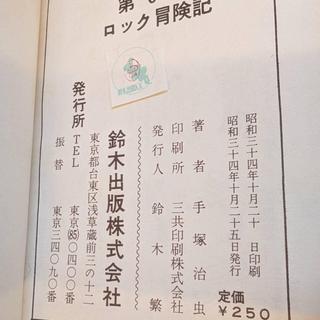 第
ロック冒険記
昭和三十四年十月二十 日印刷
昭和三十四年十月二十五日発行
定価
￥250
著者 手塚治虫
印刷所 三共印刷株式会社
発行人 鈴木繁
鈴木出版株式会社
東京都台東区浅草蔵前三の十二
発行所 TEL 東京(85)〇四〇〇番
振替 東京三四〇九〇番